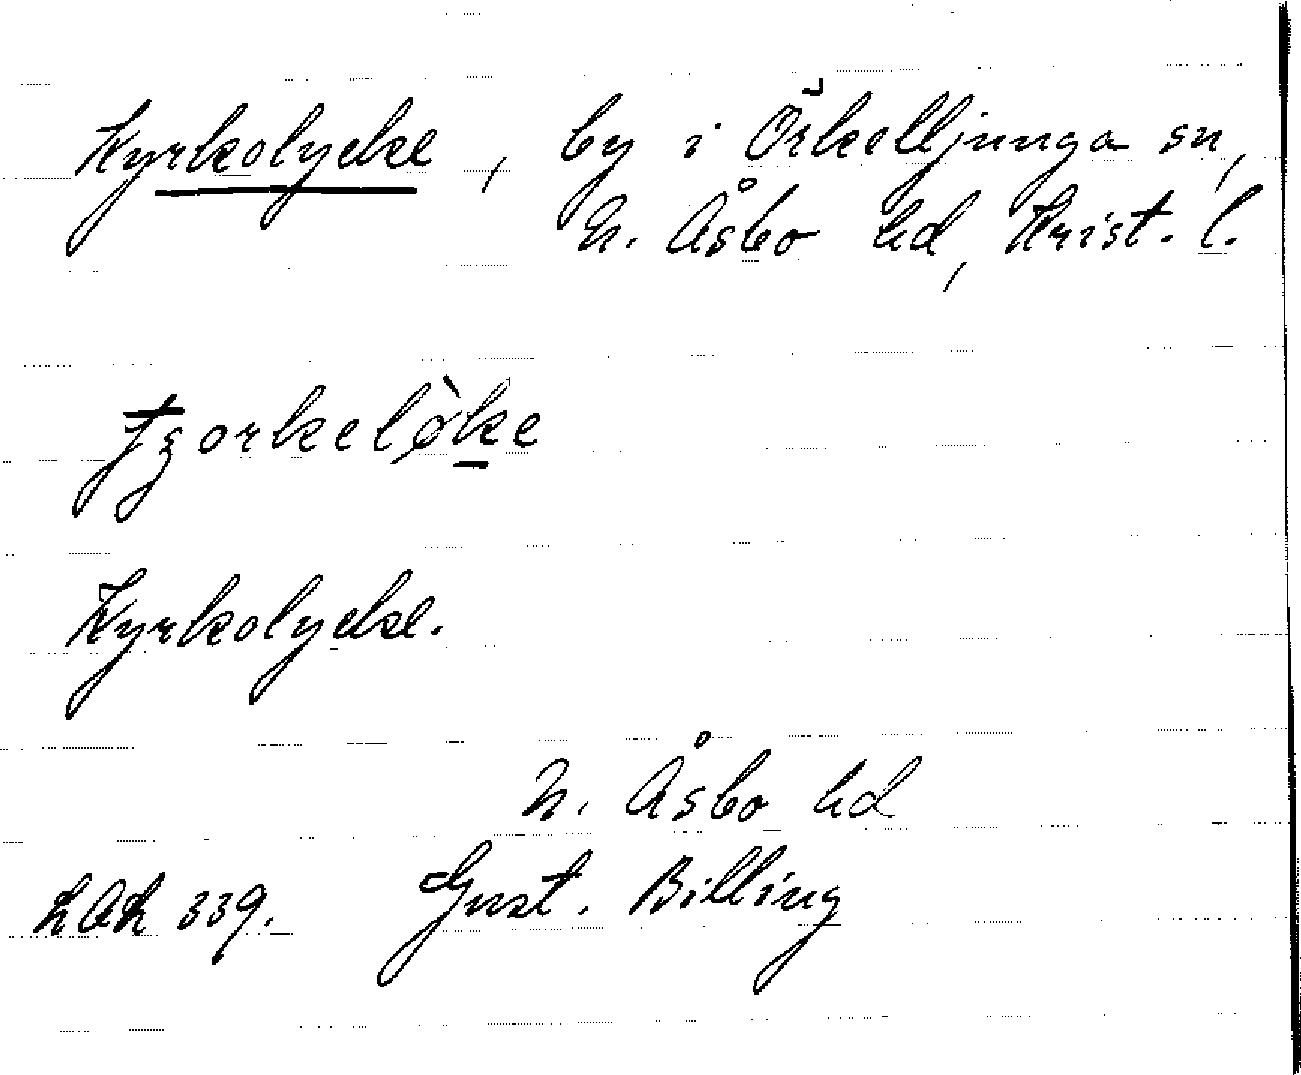 Kyrkolycke, by i Örkelljunga sn,
N. Åsbo hd, Krist. l.
Kyrkolycke.
N. Åsbo hd
339. Gust. Billing